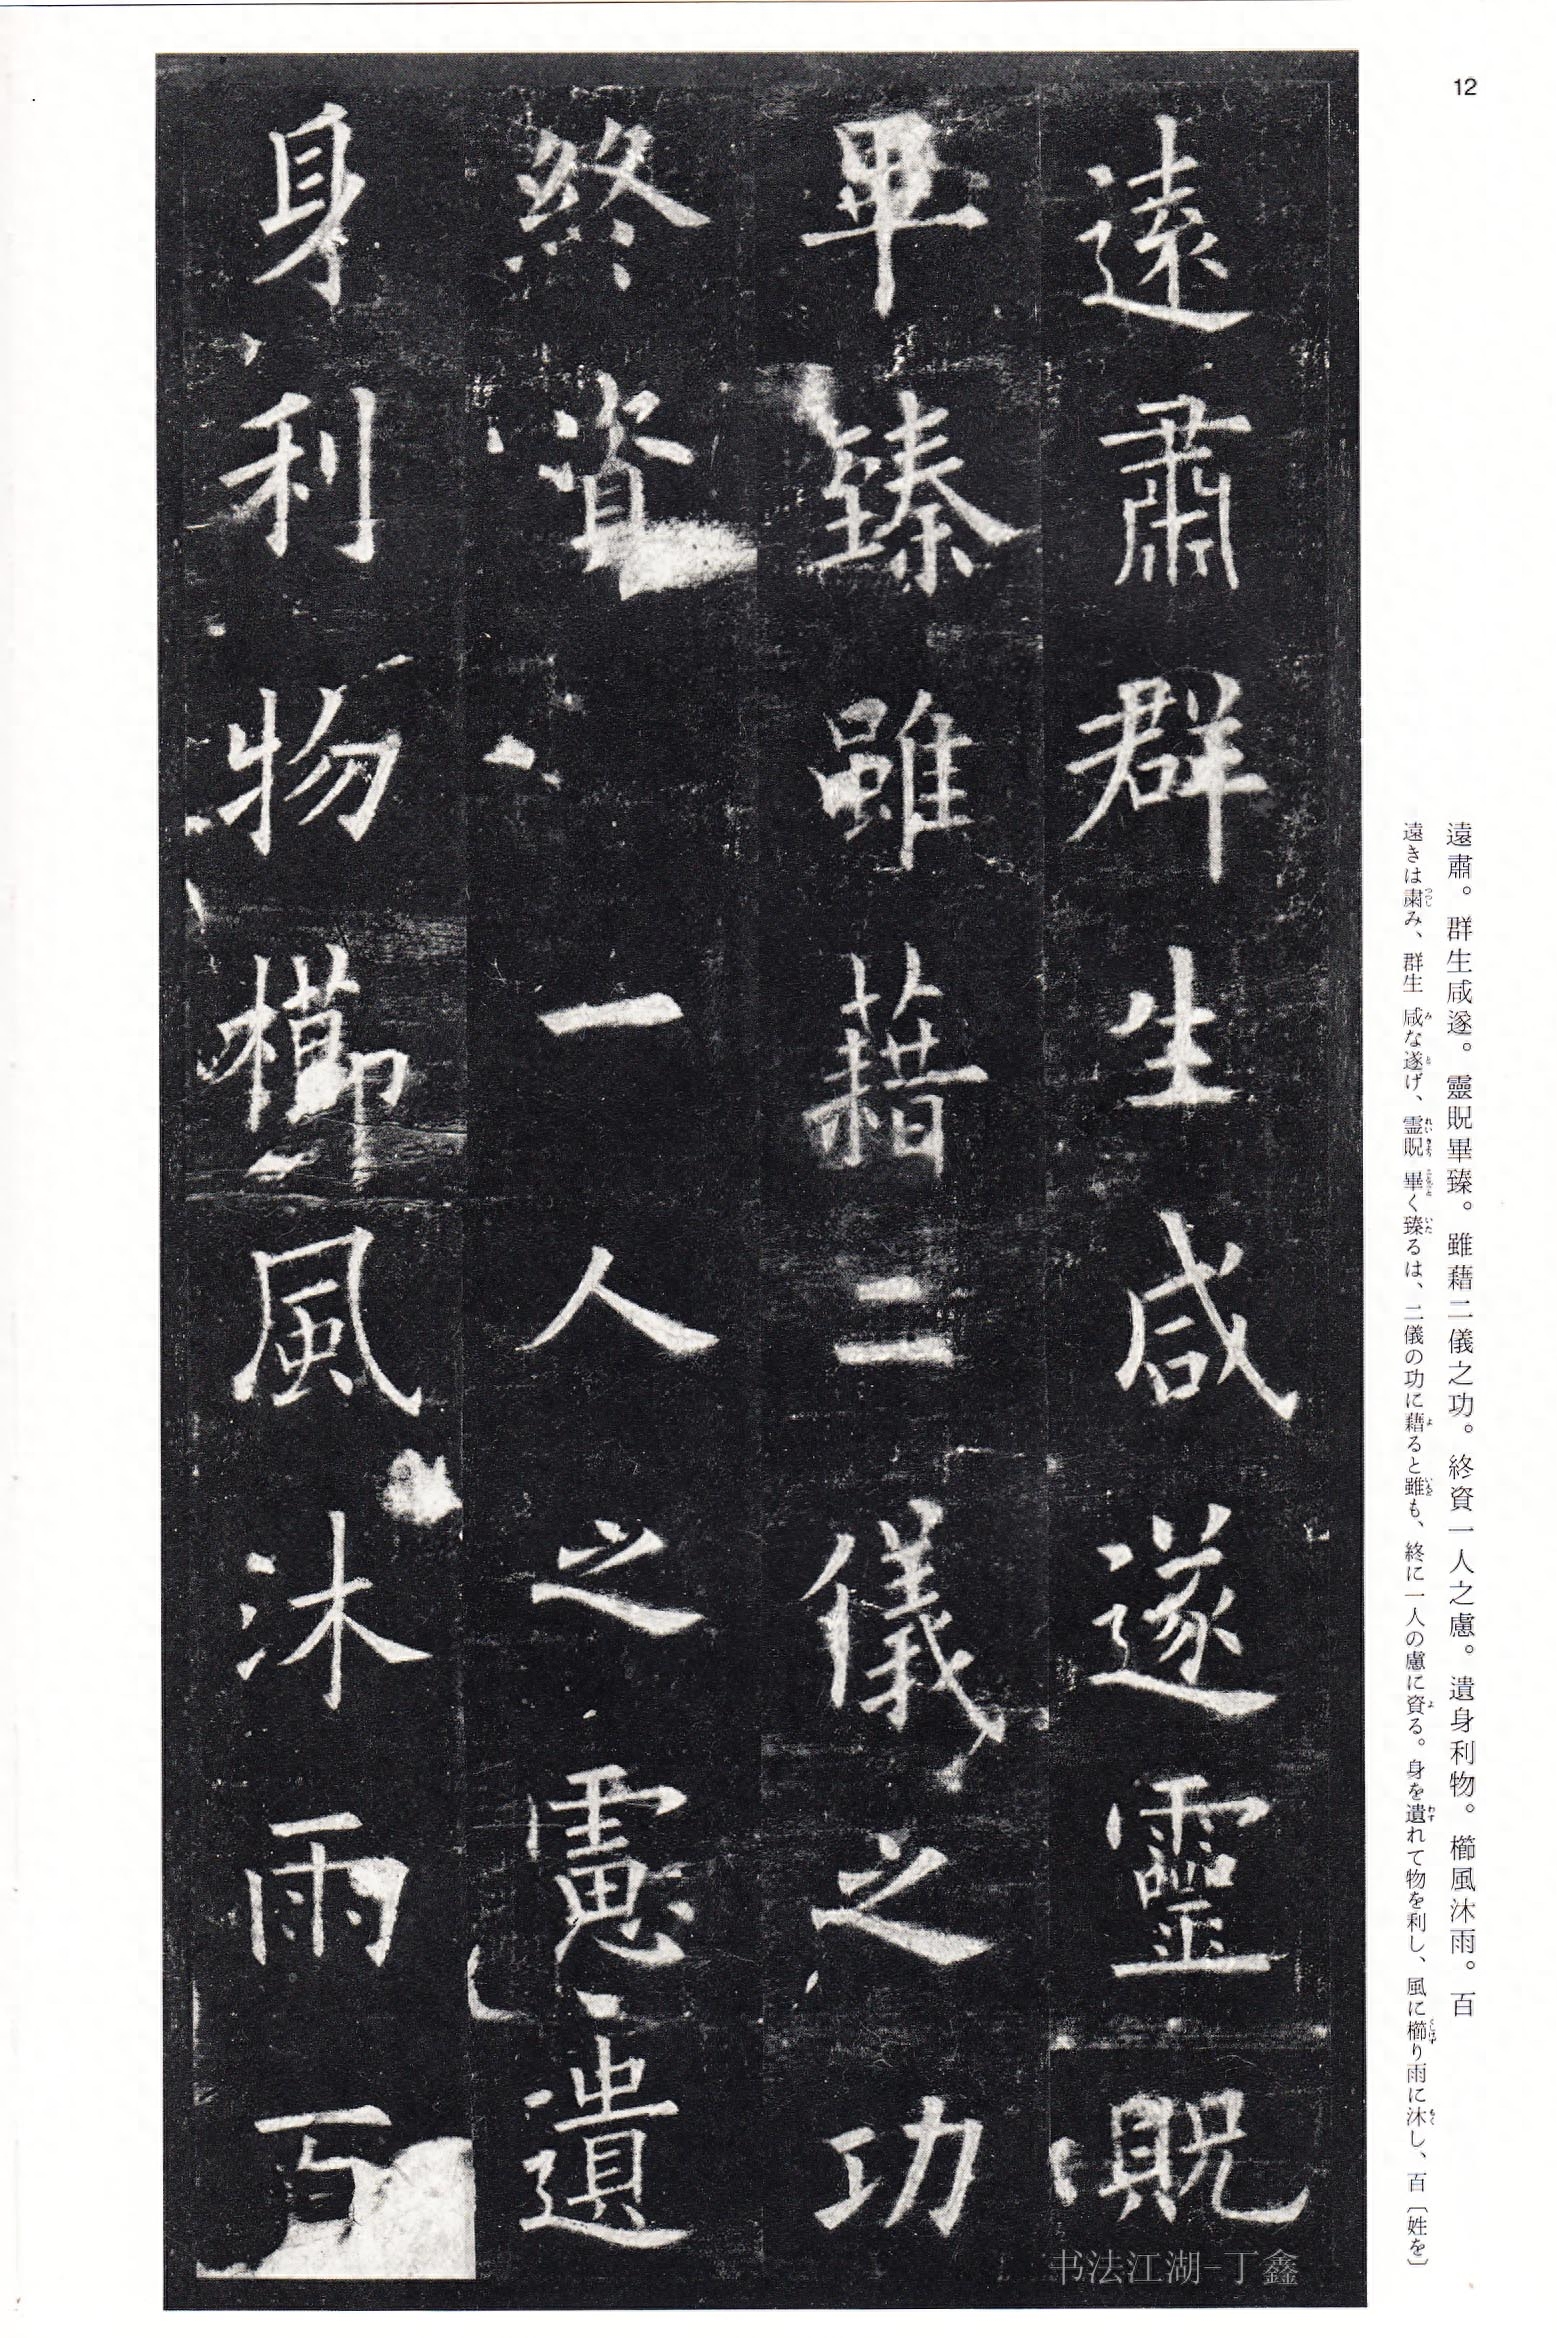 12
遠肅。群生咸遂。靈貺畢臻。雖藉二儀之功。終資一人之慮。遺身利物。櫛風沐雨。百
遠きは粛み、群生 咸な遂げ、霊貺 畢く臻るは、二儀の功に藉ると雖も、終に一人の慮に資る。身を遺れて物を利し、風に櫛り雨に沐し、百〔姓を〕
遠肅群生咸遂靈貺
畢臻雖藉二儀之功
終資一人之慮遺
身利物櫛風沐雨百
书法江湖-丁鑫